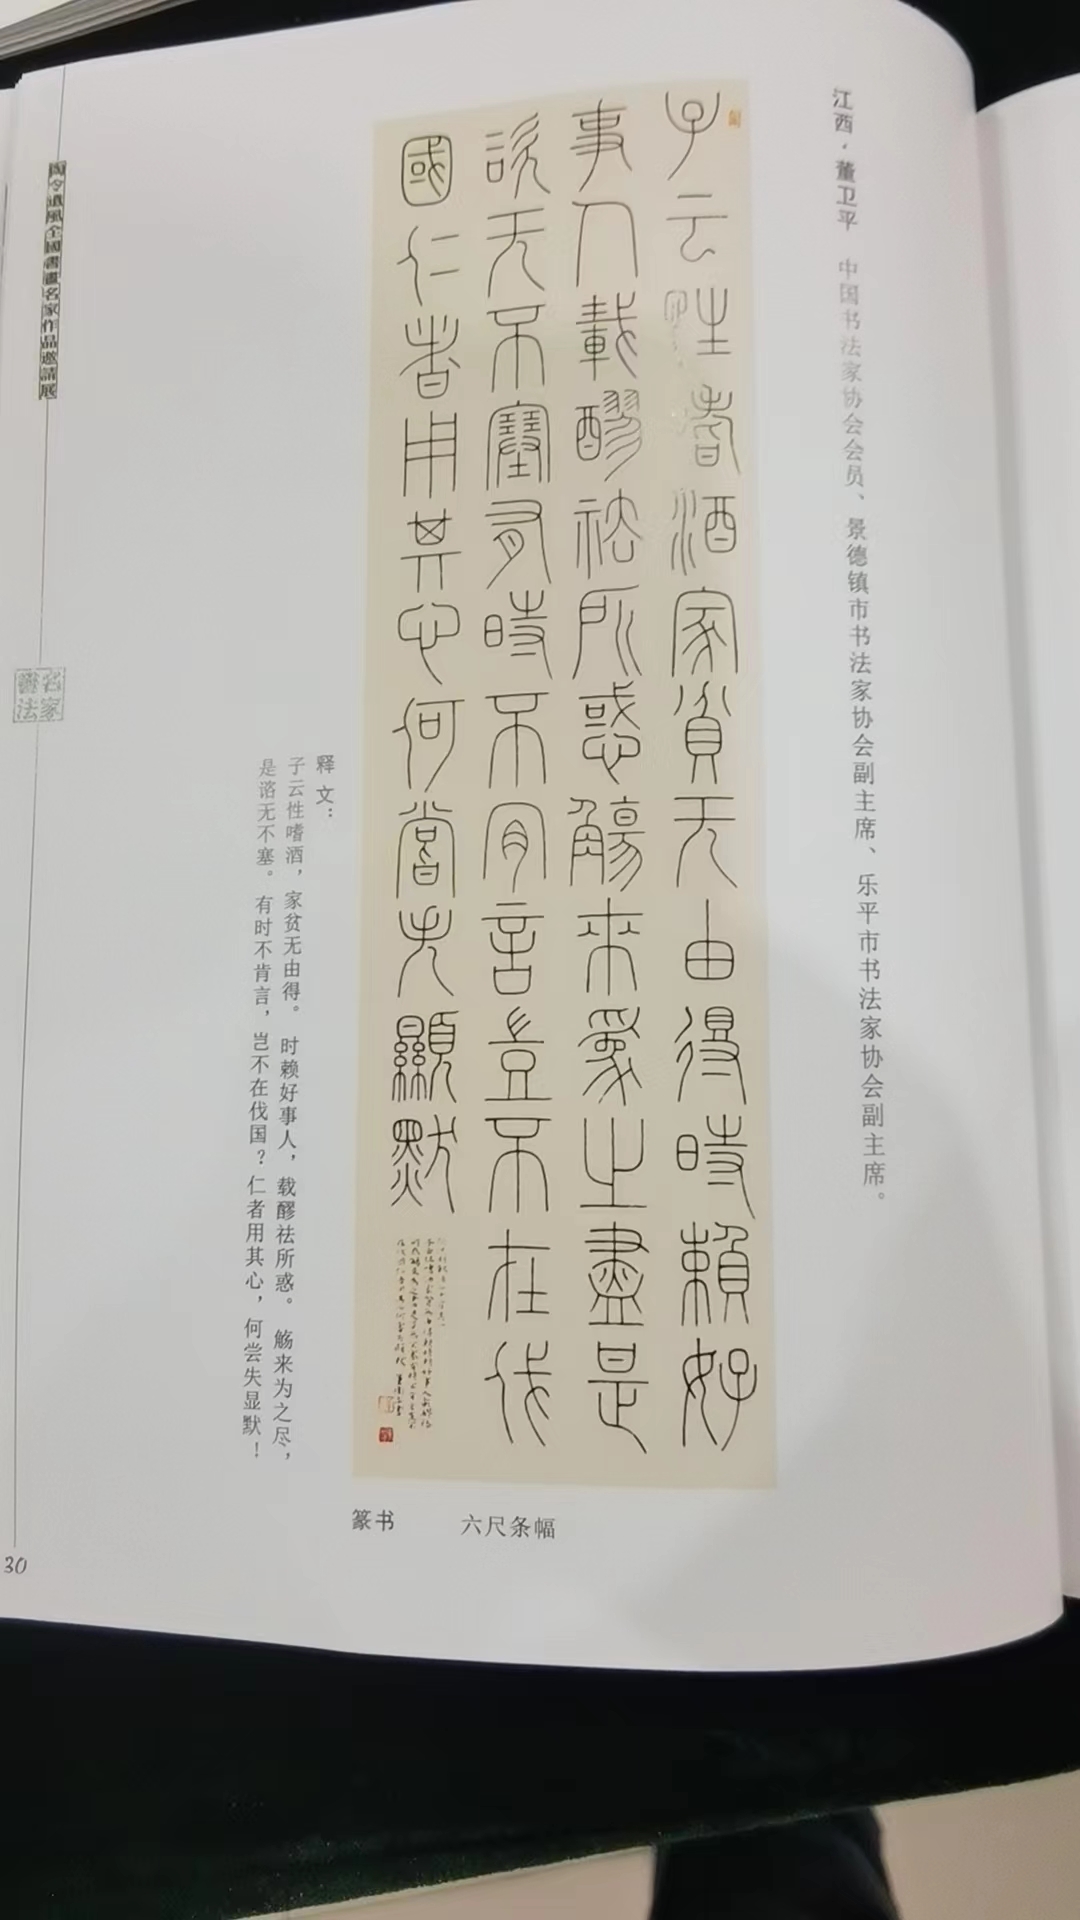 江西·董卫平 中国书法家协会会员、景德镇市书法家协会副主席、乐平市书法家协会副主席。
子云性嗜酒家贫无由得時賴好
事人載醪祛所惑觴来爲之盡是
諮无不塞有時不肎言豈不在伐
國仁者用其心何嘗失顯默
篆书 六尺条幅
释文：
子云性嗜酒，家贫无由得。时赖好事人，载醪祛所惑。觞来为之尽，
是谘无不塞。有时不肯言，岂不在伐国？仁者用其心，何尝失显默！
陶令遺風全國書畫名家作品邀請展
名家書法
30